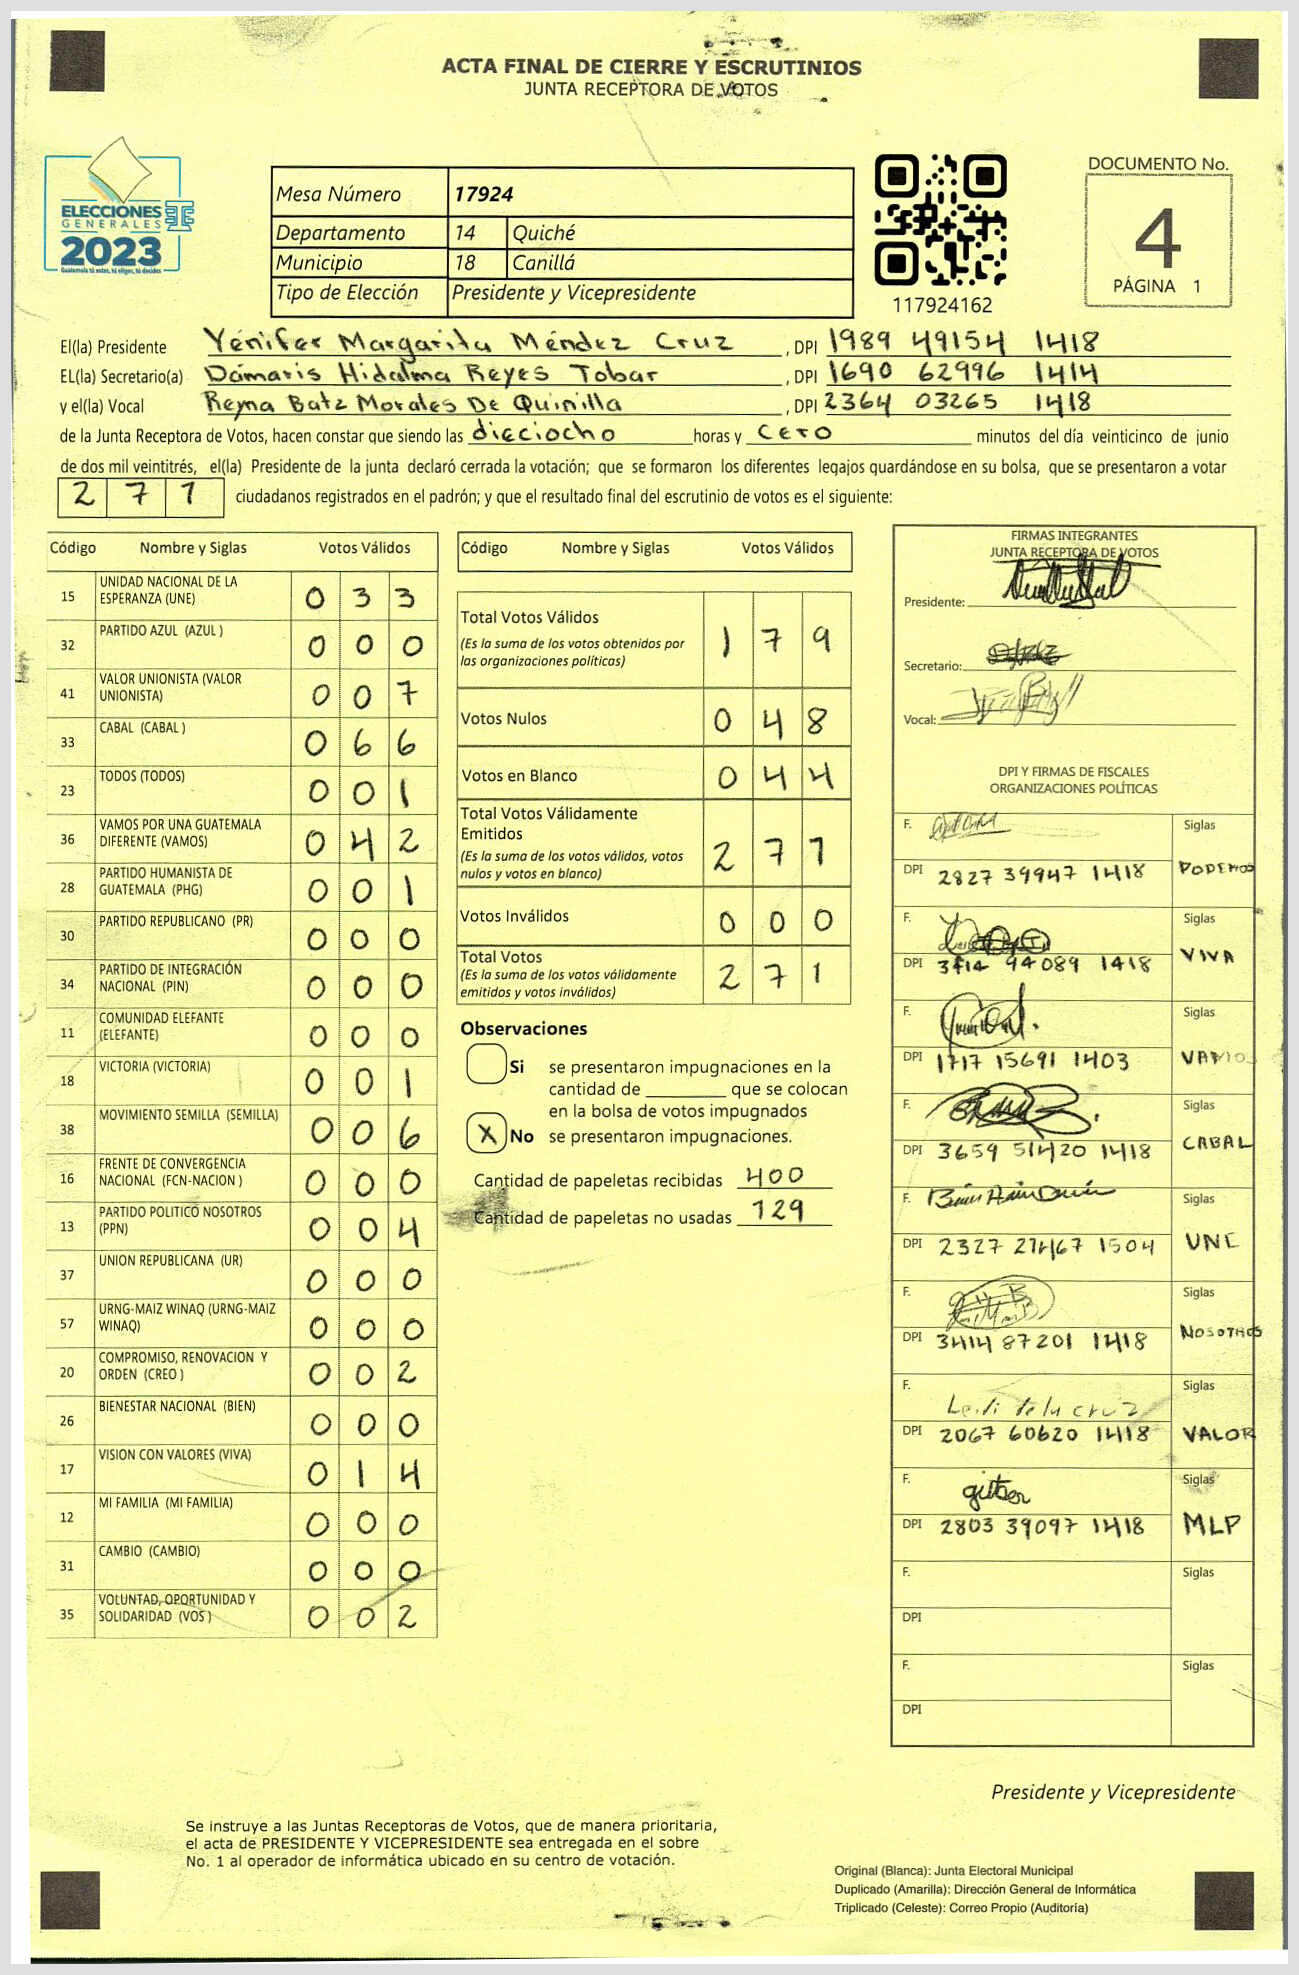 ACTA FINAL DE CIERRE Y ESCRUTINIOS
JUNTA RECEPTORA DE VOTOS
ELECCIONES
GENERALES
2023
Guatemala tú estas, tú eliges, tú decides
Mesa Número 17924
Departamento 14 Quiché
Municipio 18 Canillá
Tipo de Elección Presidente y Vicepresidente
117924162
DOCUMENTO No.
4
PÁGINA 1
El(la) Presidente Yénifer Margarita Méndez Cruz , DPI 1989 49154 1418
EL(la) Secretario(a) Dámaris Hidalma Reyes Tobar , DPI 1690 62996 1414
y el(la) Vocal Reyna Batz Morales De Quinilla , DPI 2364 03265 1418
de la Junta Receptora de Votos, hacen constar que siendo las dieciocho horas y cero minutos del día veinticinco de junio
de dos mil veintitrés, el(la) Presidente de la junta declaró cerrada la votación; que se formaron los diferentes legajos guardándose en su bolsa, que se presentaron a votar
2 7 1 ciudadanos registrados en el padrón; y que el resultado final del escrutinio de votos es el siguiente:
Código Nombre y Siglas Votos Válidos
15 UNIDAD NACIONAL DE LA ESPERANZA (UNE) 0 3 3
32 PARTIDO AZUL (AZUL ) 0 0 0
41 VALOR UNIONISTA (VALOR UNIONISTA) 0 0 7
33 CABAL (CABAL ) 0 6 6
23 TODOS (TODOS) 0 0 1
36 VAMOS POR UNA GUATEMALA DIFERENTE (VAMOS) 0 4 2
28 PARTIDO HUMANISTA DE GUATEMALA (PHG) 0 0 1
30 PARTIDO REPUBLICANO (PR) 0 0 0
34 PARTIDO DE INTEGRACIÓN NACIONAL (PIN) 0 0 0
11 COMUNIDAD ELEFANTE (ELEFANTE) 0 0 0
18 VICTORIA (VICTORIA) 0 0 1
38 MOVIMIENTO SEMILLA (SEMILLA) 0 0 6
16 FRENTE DE CONVERGENCIA NACIONAL (FCN-NACION ) 0 0 0
13 PARTIDO POLITICO NOSOTROS (PPN) 0 0 4
37 UNION REPUBLICANA (UR) 0 0 0
57 URNG-MAIZ WINAQ (URNG-MAIZ WINAQ) 0 0 0
20 COMPROMISO, RENOVACION Y ORDEN (CREO ) 0 0 2
26 BIENESTAR NACIONAL (BIEN) 0 0 0
17 VISION CON VALORES (VIVA) 0 1 4
12 MI FAMILIA (MI FAMILIA) 0 0 0
31 CAMBIO (CAMBIO) 0 0 0
35 VOLUNTAD, OPORTUNIDAD Y SOLIDARIDAD (VOS ) 0 0 2
Código Nombre y Siglas Votos Válidos
Total Votos Válidos 1 7 9
(Es la suma de los votos obtenidos por
las organizaciones políticas)
Votos Nulos 0 4 8
Votos en Blanco 0 4 4
Total Votos Válidamente
Emitidos 2 7 1
(Es la suma de los votos válidos, votos
nulos y votos en blanco)
Votos Inválidos 0 0 0
Total Votos 2 7 1
(Es la suma de los votos válidamente
emitidos y votos inválidos)
Observaciones
Si se presentaron impugnaciones en la
cantidad de ________ que se colocan
en la bolsa de votos impugnados
X No se presentaron impugnaciones.
Cantidad de papeletas recibidas 400
Cantidad de papeletas no usadas 129
FIRMAS INTEGRANTES
JUNTA RECEPTORA DE VOTOS
Presidente:
Secretario:
Vocal:
DPI Y FIRMAS DE FISCALES
ORGANIZACIONES POLÍTICAS
F. Siglas
DPI 2827 39947 1418 PODEMOS
F. Siglas
DPI 3414 94089 1418 VIVA
F. Siglas
DPI 1717 15691 1403 VAMOS
F. Siglas
DPI 3659 51420 1418 CABAL
F. Siglas
DPI 2327 27467 1504 UNE
F. Siglas
DPI 3414 87201 1418 NOSOTROS
F. Leidi de la cruz Siglas
DPI 2067 60620 1418 VALOR
F. Siglas
DPI 2803 39097 1418 MLP
F. Siglas
DPI
F. Siglas
DPI
Presidente y Vicepresidente
Se instruye a las Juntas Receptoras de Votos, que de manera prioritaria,
el acta de PRESIDENTE Y VICEPRESIDENTE sea entregada en el sobre
No. 1 al operador de informática ubicado en su centro de votación.
Original (Blanca): Junta Electoral Municipal
Duplicado (Amarilla): Dirección General de Informática
Triplicado (Celeste): Correo Propio (Auditoría)